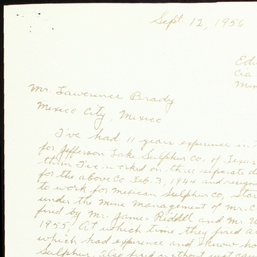 Sept. 12, 1956
Mr Lawrence Brady
Mexico City, Mexico
I've had 11 years experience in
for Jefferson Lake Sulphur Co. of Texas
I've worked on three separate
for the above Co. Feb. 3, 1944 and
to work for Mexican Sulphur Co.,
under the mine management of Mr. C
fired by Mr. James Riddell and Mr.
1955; At which time they fired
which had experience and know how
Sulphur. Also fired without just